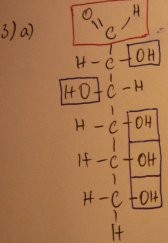 3) a)
O H
C
H - C - OH
HO - C - H
H - C - OH
H - C - OH
H - C - OH
H